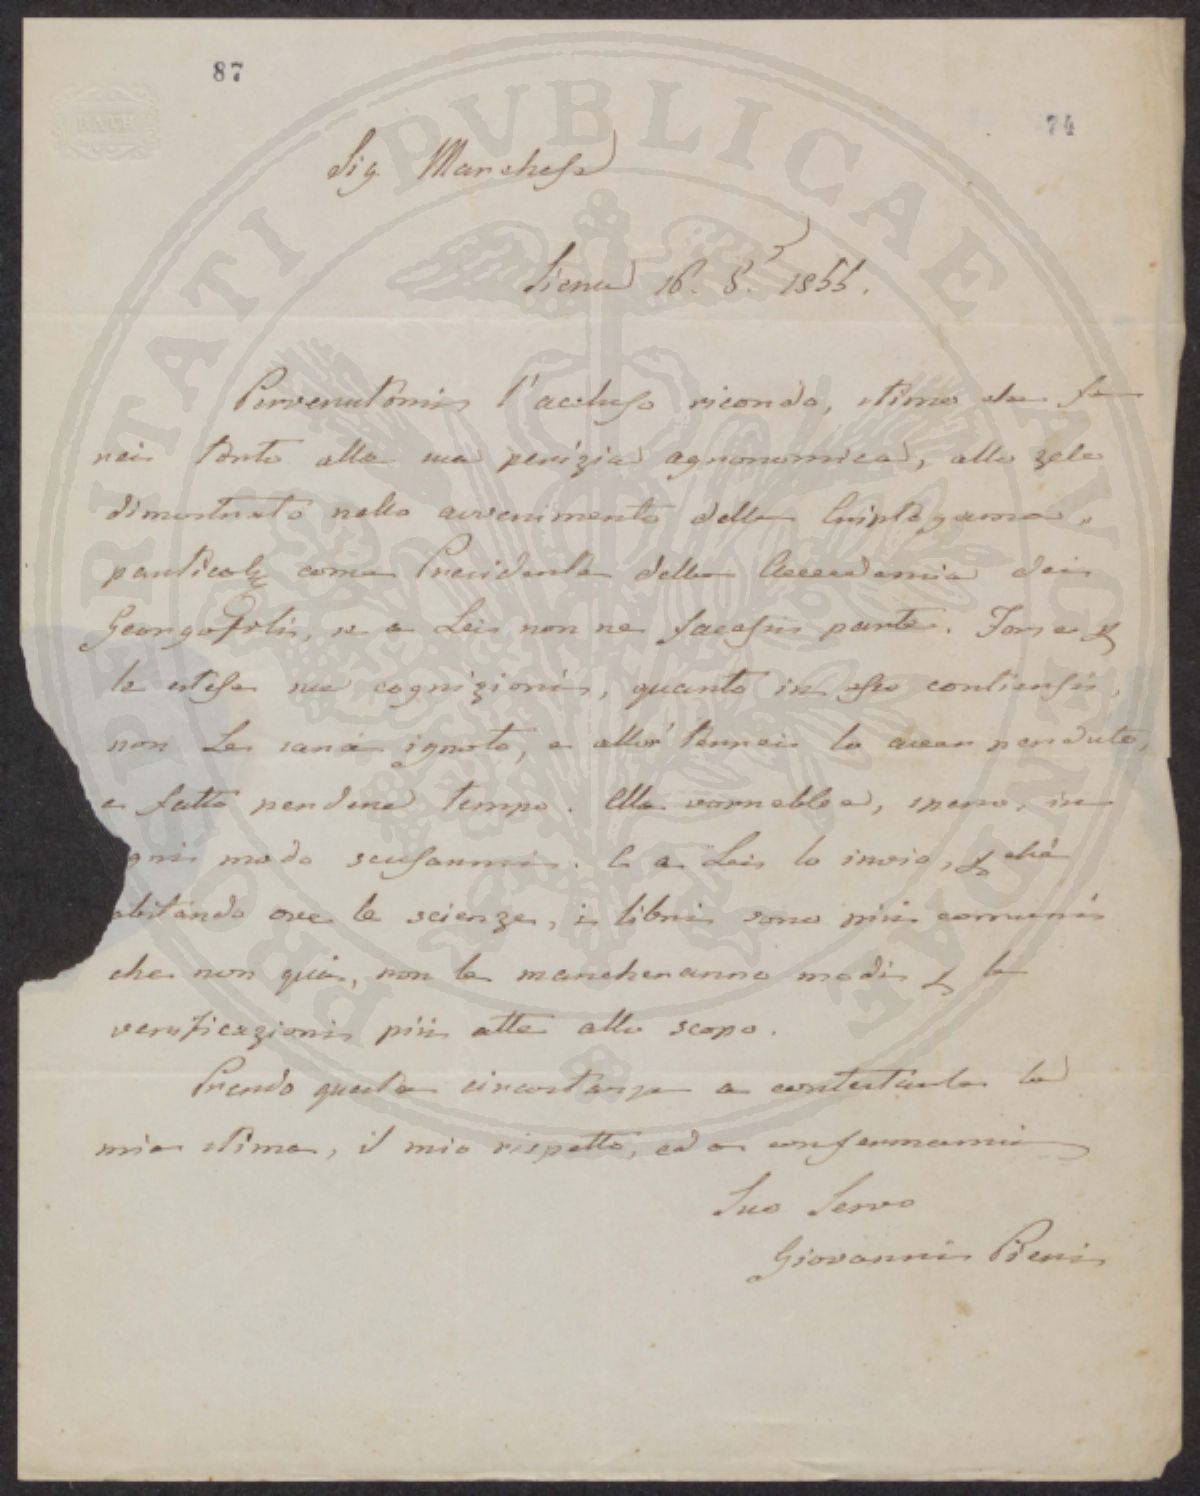 87
74
BATH
PROSPERITATI PVBLICAE AVGENDAE
Sig. Marchese
Siena 16. 8.re 1855.
Pervenutomi l'accluso ricordo, stimo che fa
rei torto alla sua perizia agronomica, allo zelo
dimostrato nello avvenimento della Criptogama,
particolre come Presidente della Accademia dei
Georgofili, se a Lei non ne facessi parte. Forse p
le estese sue cognizioni, quanto in esso contiensi,
non Le sarà ignoto, e allor' terrei lo aver perduto,
e fatto perdere tempo. Ella vorrebbe, spero, in
gni modo scusarmi. E a Lei lo invio, p chè
abitando ove le scienze, i libri sono più comuni
che non quà, non le mancheranno modi p le
verificazioni più atte allo scopo.
Prendo questa circostanza a contestarle la
mia stima, il mio rispetto, ed a confermarmi
Suo Servo
Giovanni Pieri